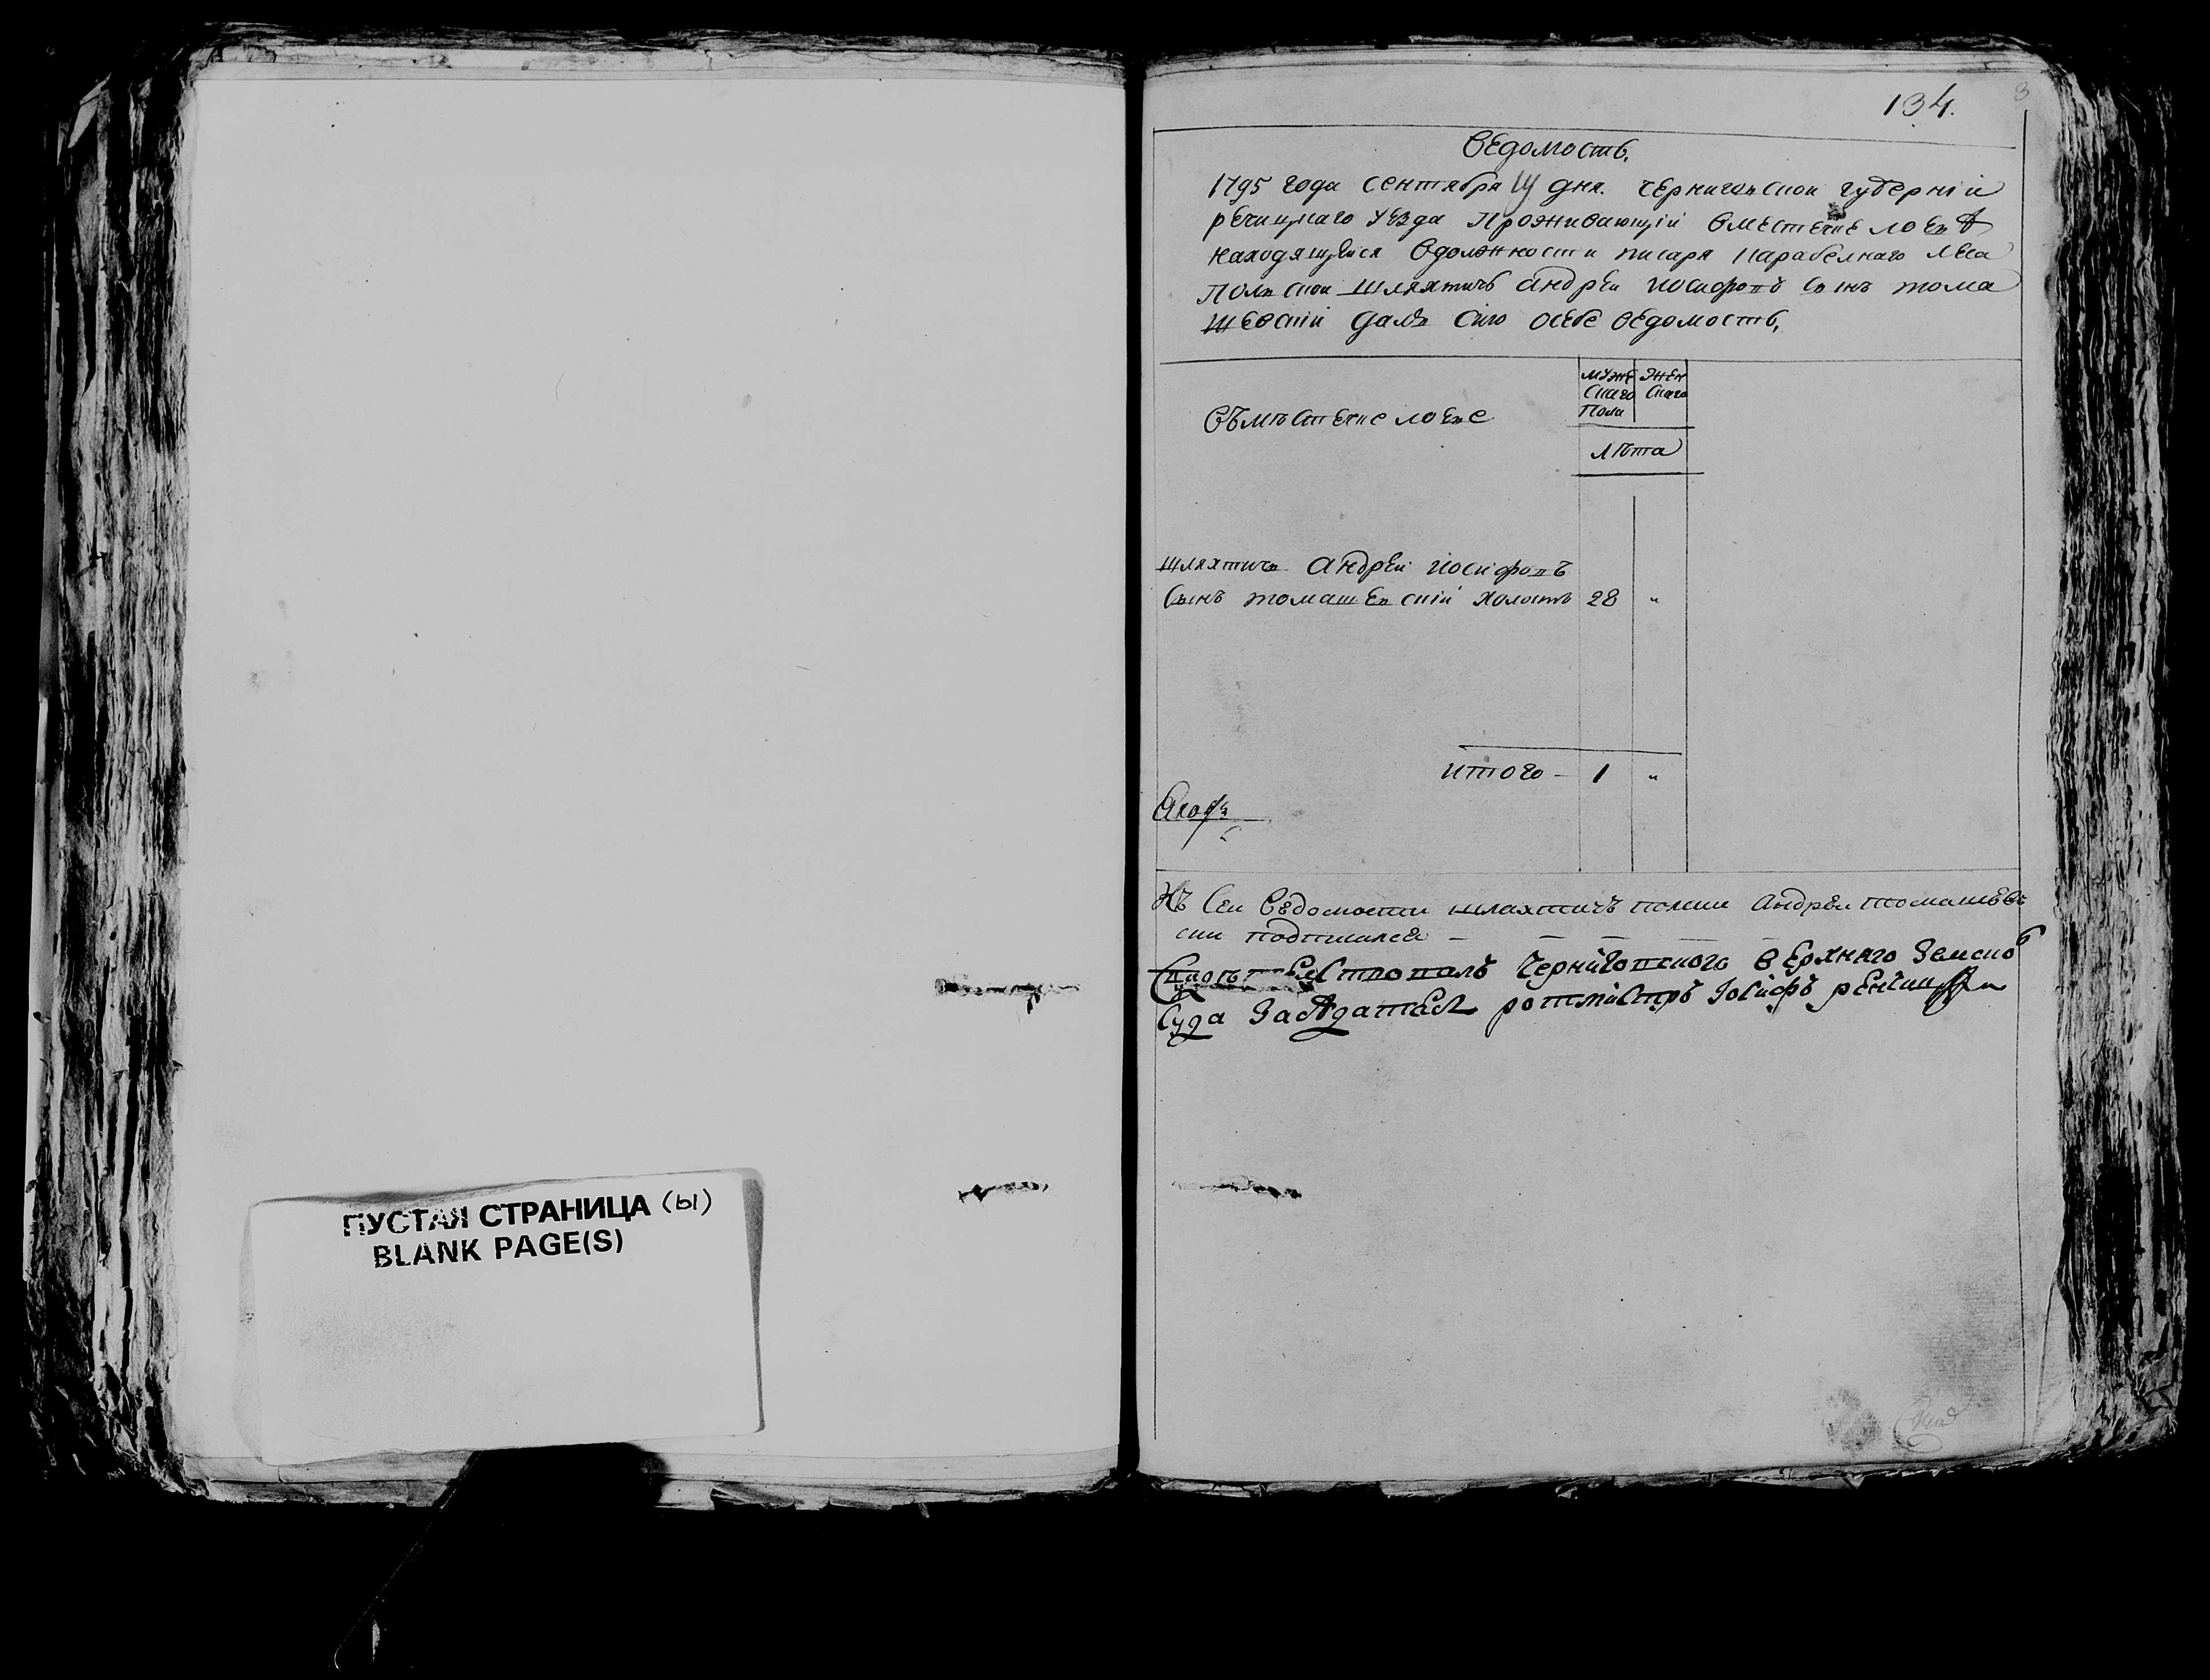 ПУСТАЯ СТРАНИЦА (ы)
BLANK PAGE(S)
134.
3
ведомость.
1795 года сентября дня. черниговской губерніи
речицкаго уезда проживающіи вместечке лоеве
находящийся вдолжности писаря карабелнаго леса
полской шляхтичъ андреи иосифовъ сынъ тома
шевскіи далъ сию осебе ведомость,
въместечке лоеве
муже
скаго
пола
жен
скаго
лѣта
шляхтичъ андреи иосифовъ
сынъ томашевскіи холостъ 28 "
итого - 1 "
Къ сеи ведомости шляхтичъ полски андреи томашевъ
ски подписался
Свидетелствовалъ черниговского верхняго земского
суда заседатель ротмистръ Иосифъ